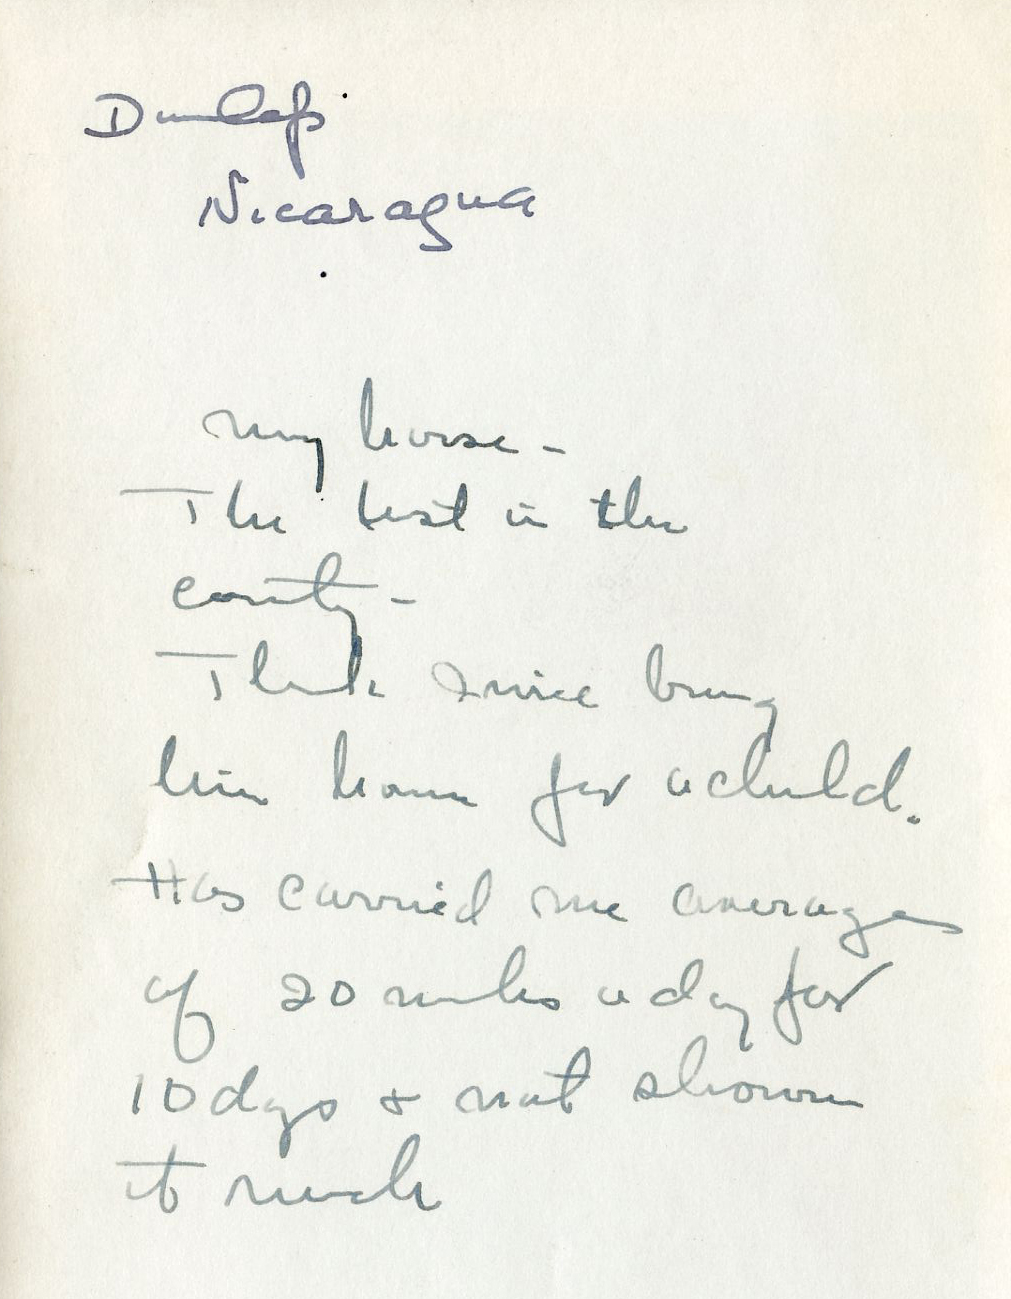 Dunlap
Nicaragua
My horse -
The best in the
county -
Think I will bring
him home for a child.
Has carried me averages
of 20 miles a day for
10 days & not shown
it much